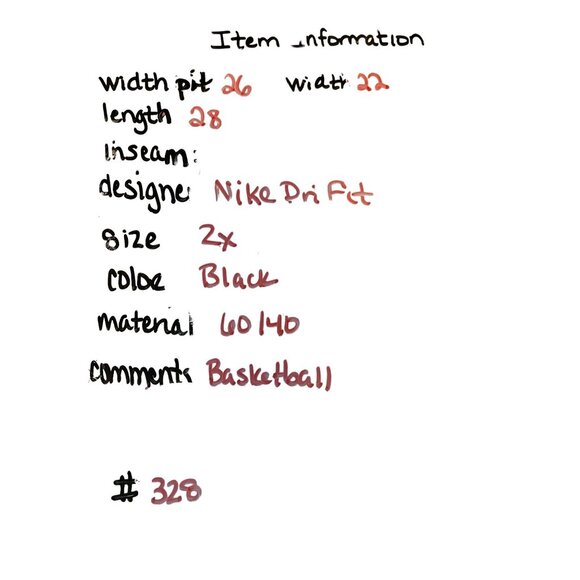 Item information
width pit 26 width 22
length 28
inseam:
designer Nike Dri Fit
size 2x
color Black
material 60/40
comments Basketball
# 328